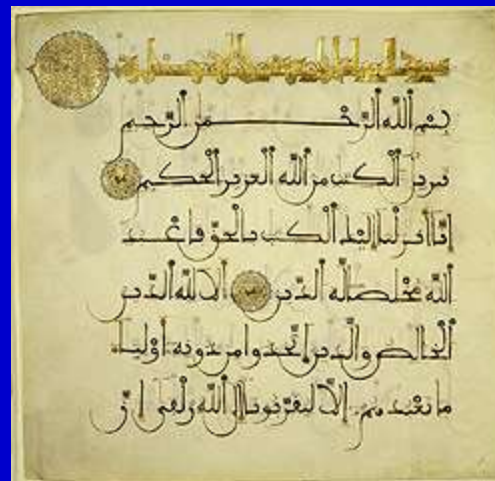 بسم الله الرحمن الرحيم
تنزيل الكتب من الله العزيز الحكيم
انا أنزلنا إليك الكتب بالحق فاعبد
الله مخلصا له الدين ألا لله الدين
الخالص والذين اتخذوا من دونه أولياء
ما نعبدهم إلا ليقربونا إلى الله زلفى إن